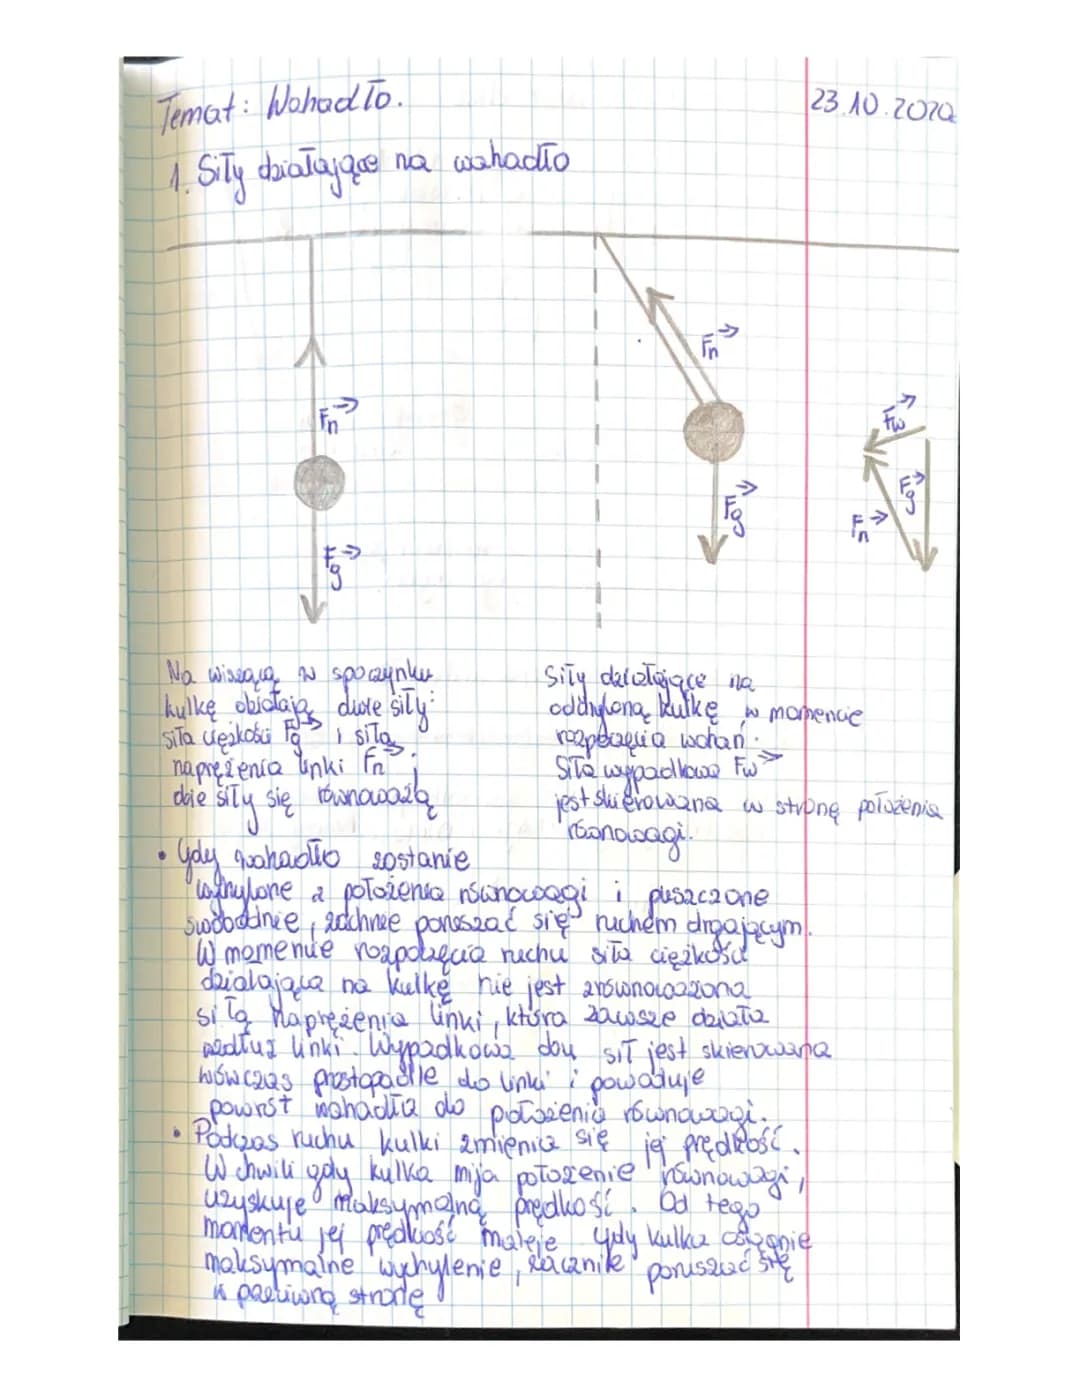 Temat: Wahadło.
23.10.2020
1. Siły działające na wahadło
Fn
Fg
Fn
Fg
Fw
Fg
Fn
Na wiszącą w spoczynku
kulkę działają dwie siły:
siła ciężkości Fg i siła
naprężenia linki Fn;
dwie siły się równoważą
Siły działające na
odchyloną kulkę w momencie
rozpoczęcia wahań.
Siła wypadkowa Fw
jest skierowana w stronę położenia
równowagi.
• Gdy wahadło zostanie
wychylone z położenia równowagi i puszczone
swobodnie, zacznie poruszać się ruchem drgającym.
W momencie rozpoczęcia ruchu siła ciężkości
działająca na kulkę nie jest zrównoważona
siłą naprężenia linki, która zawsze działa
wzdłuż linki. Wypadkowa dwu sił jest skierowana
wówczas prostopadle do linki i powoduje
powrót wahadła do położenia równowagi.
• Podczas ruchu kulki zmienia się jej prędkość.
W chwili gdy kulka mija położenie równowagi,
uzyskuje maksymalną prędkość. Od tego
momentu jej prędkość maleje Gdy kulka osiągnie
maksymalne wychylenie, zacznie poruszać się
w przeciwną stronę